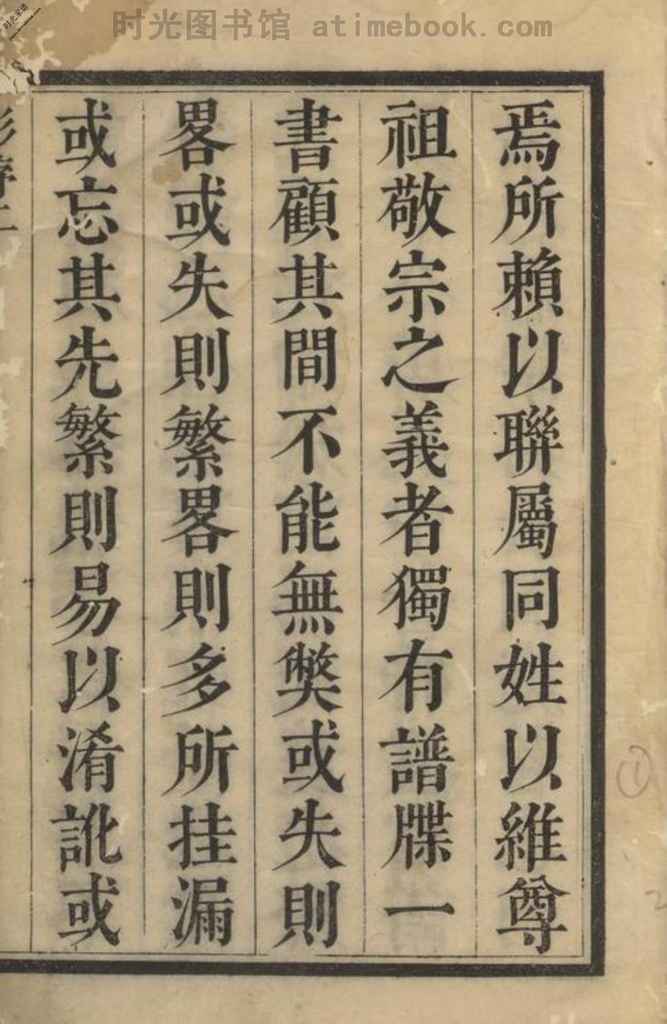 时光图书馆 © atimebook.com
焉所賴以聯屬同姓以維尊
祖敬宗之義者獨有譜牒一
書顧其間不能無獘或失則
畧或失則繁畧則多所挂漏
或忘其先繁則易以淆訛或